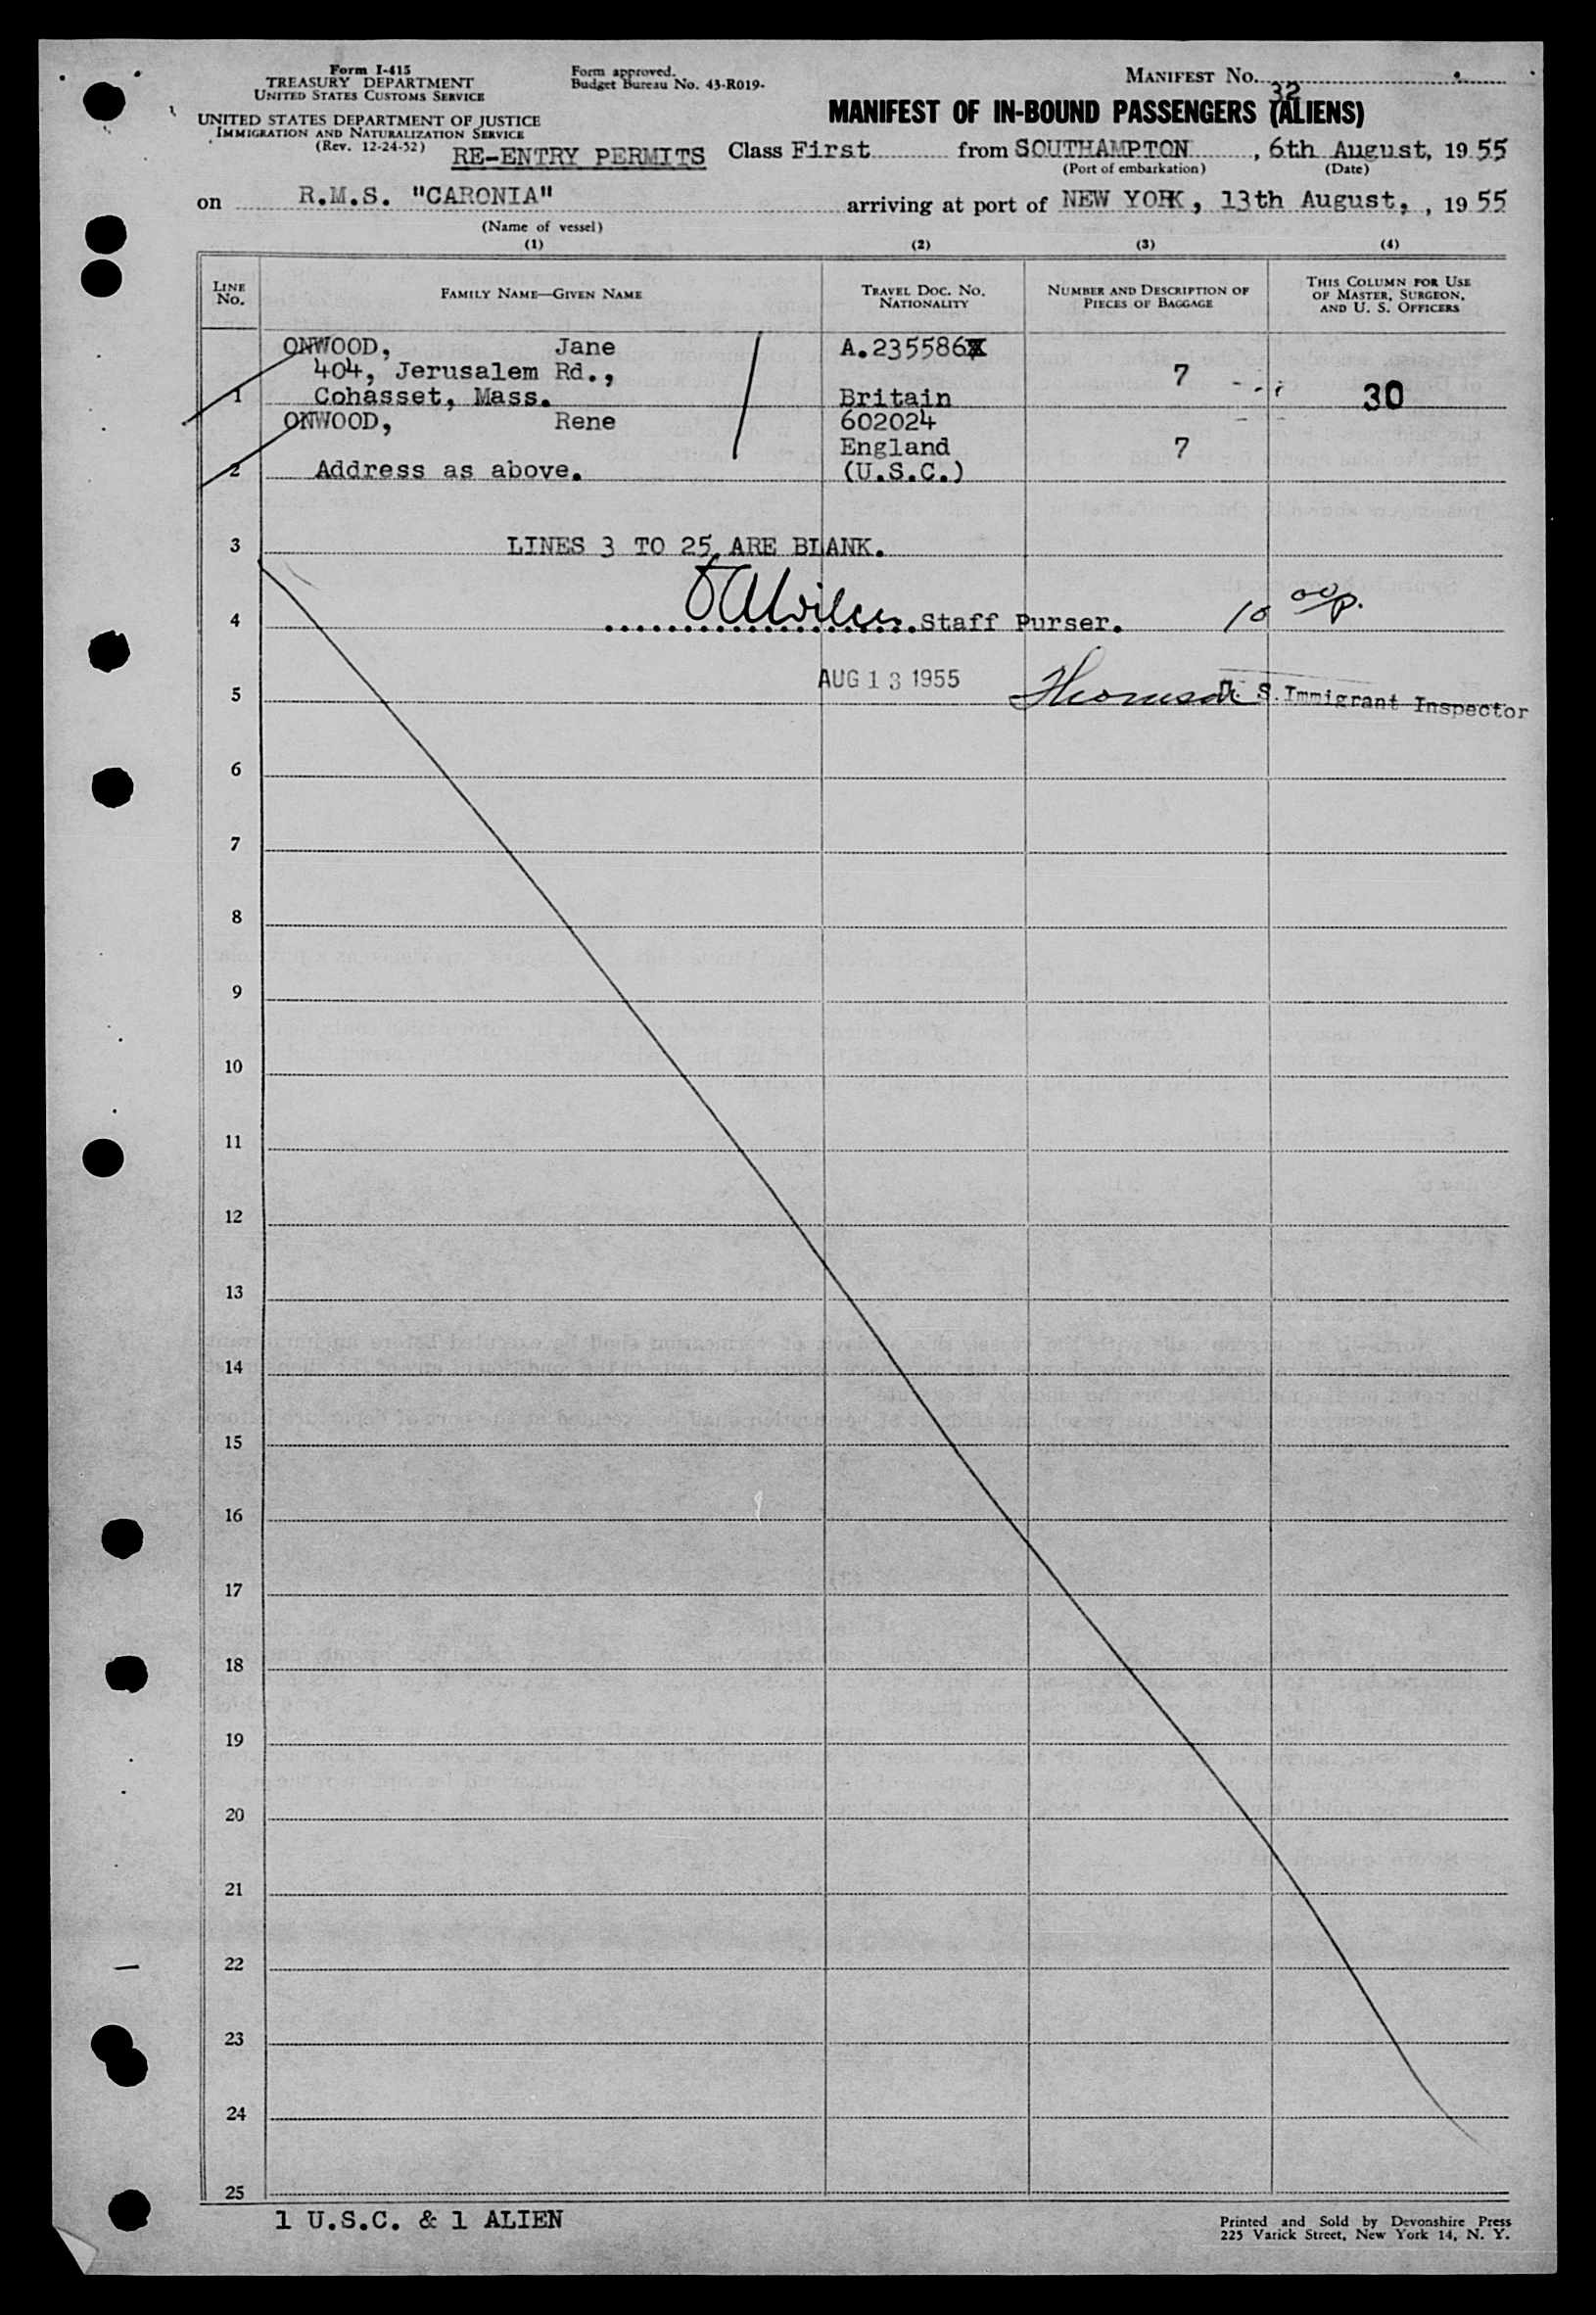 Form I-415
TREASURY DEPARTMENT
UNITED STATES CUSTOMS SERVICE
UNITED STATES DEPARTMENT OF JUSTICE
IMMIGRATION AND NATURALIZATION SERVICE
(Rev. 12-24-52)
Form approved.
Budget Bureau No. 43-R019-
MANIFEST NO.
32
MANIFEST OF IN-BOUND PASSENGERS (ALIENS)
RE-ENTRY PERMITS Class First from SOUTHAMPTON, 6th August, 19 55
(Port of embarkation) (Date)
on R.M.S. "CARONIA" arriving at port of NEW YORK, 13th August, , 19 55
(Name of vessel)
(1) (2) (3) (4)
LINE NO. FAMILY NAME—GIVEN NAME TRAVEL DOC. NO. NATIONALITY NUMBER AND DESCRIPTION OF PIECES OF BAGGAGE THIS COLUMN FOR USE OF MASTER, SURGEON, AND U. S. OFFICERS
ONWOOD, Jane A.235586
404, Jerusalem Rd., 7
1 Cohasset, Mass. Britain 30
ONWOOD, Rene 602024
England 7
2 Address as above. (U.S.C.)
3 LINES 3 TO 25 ARE BLANK.
4 Staff Purser. 10 00 p.
5 AUG 13 1955 Thomson U. S. Immigrant Inspector
6
7
8
9
10
11
12
13
14
15
16
17
18
19
20
21
22
23
24
25
1 U.S.C. & 1 ALIEN
Printed and Sold by Devonshire Press
225 Varick Street, New York 14, N. Y.